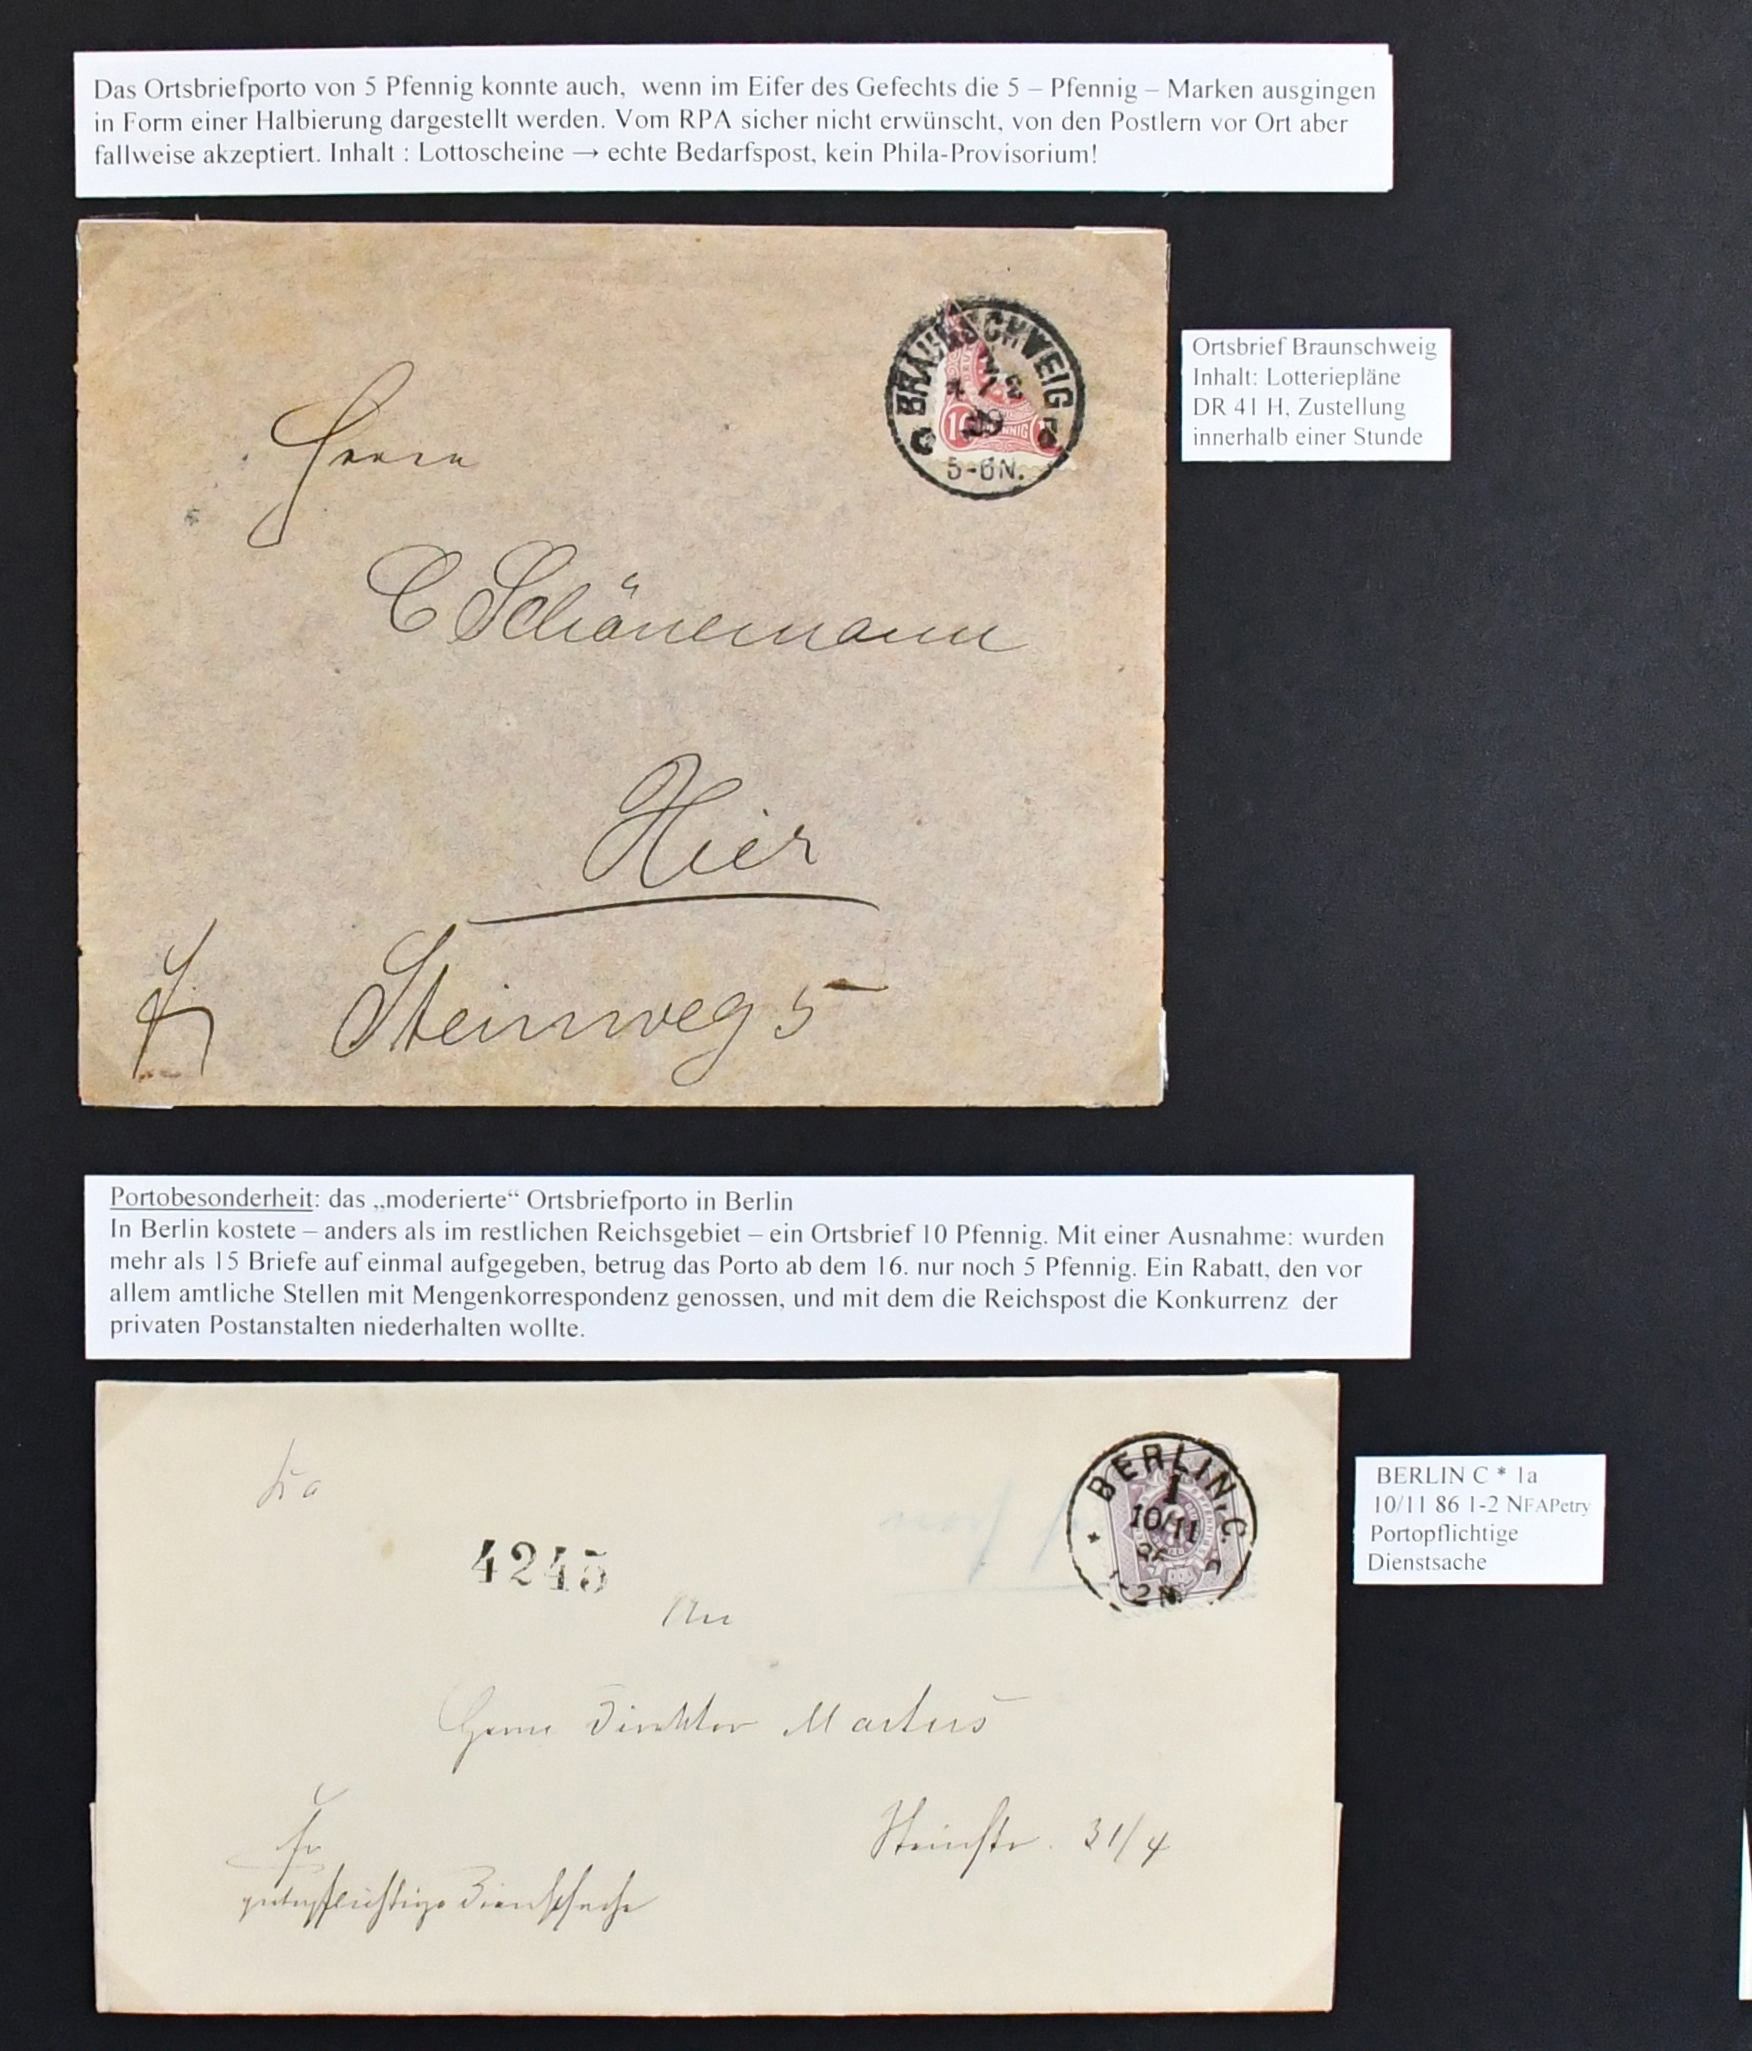 Das Ortsbriefporto von 5 Pfennig konnte auch, wenn im Eifer des Gefechts die 5 – Pfennig – Marken ausgingen
in Form einer Halbierung dargestellt werden. Vom RPA sicher nicht erwünscht, von den Postlern vor Ort aber
fallweise akzeptiert. Inhalt : Lottoscheine → echte Bedarfspost, kein Phila-Provisorium!
BRAUNSCHWEIG
5-6N.
Ortsbrief Braunschweig
Inhalt: Lotteriepläne
DR 41 H, Zustellung
innerhalb einer Stunde
Herrn
C Schönemann
Hier
Steinweg 5
Portobesonderheit: das „moderierte“ Ortsbriefporto in Berlin
In Berlin kostete – anders als im restlichen Reichsgebiet – ein Ortsbrief 10 Pfennig. Mit einer Ausnahme: wurden
mehr als 15 Briefe auf einmal aufgegeben, betrug das Porto ab dem 16. nur noch 5 Pfennig. Ein Rabatt, den vor
allem amtliche Stellen mit Mengenkorrespondenz genossen, und mit dem die Reichspost die Konkurrenz der
privaten Postanstalten niederhalten wollte.
BERLIN, C.
1
10/11
86
1-2N.
BERLIN C * 1a
10/11 86 1-2 NFAPetry
Portopflichtige
Dienstsache
4245
An
Herrn Direktor Martus
Steinstr. 31/4
Fr
portopflichtige Dienstsache